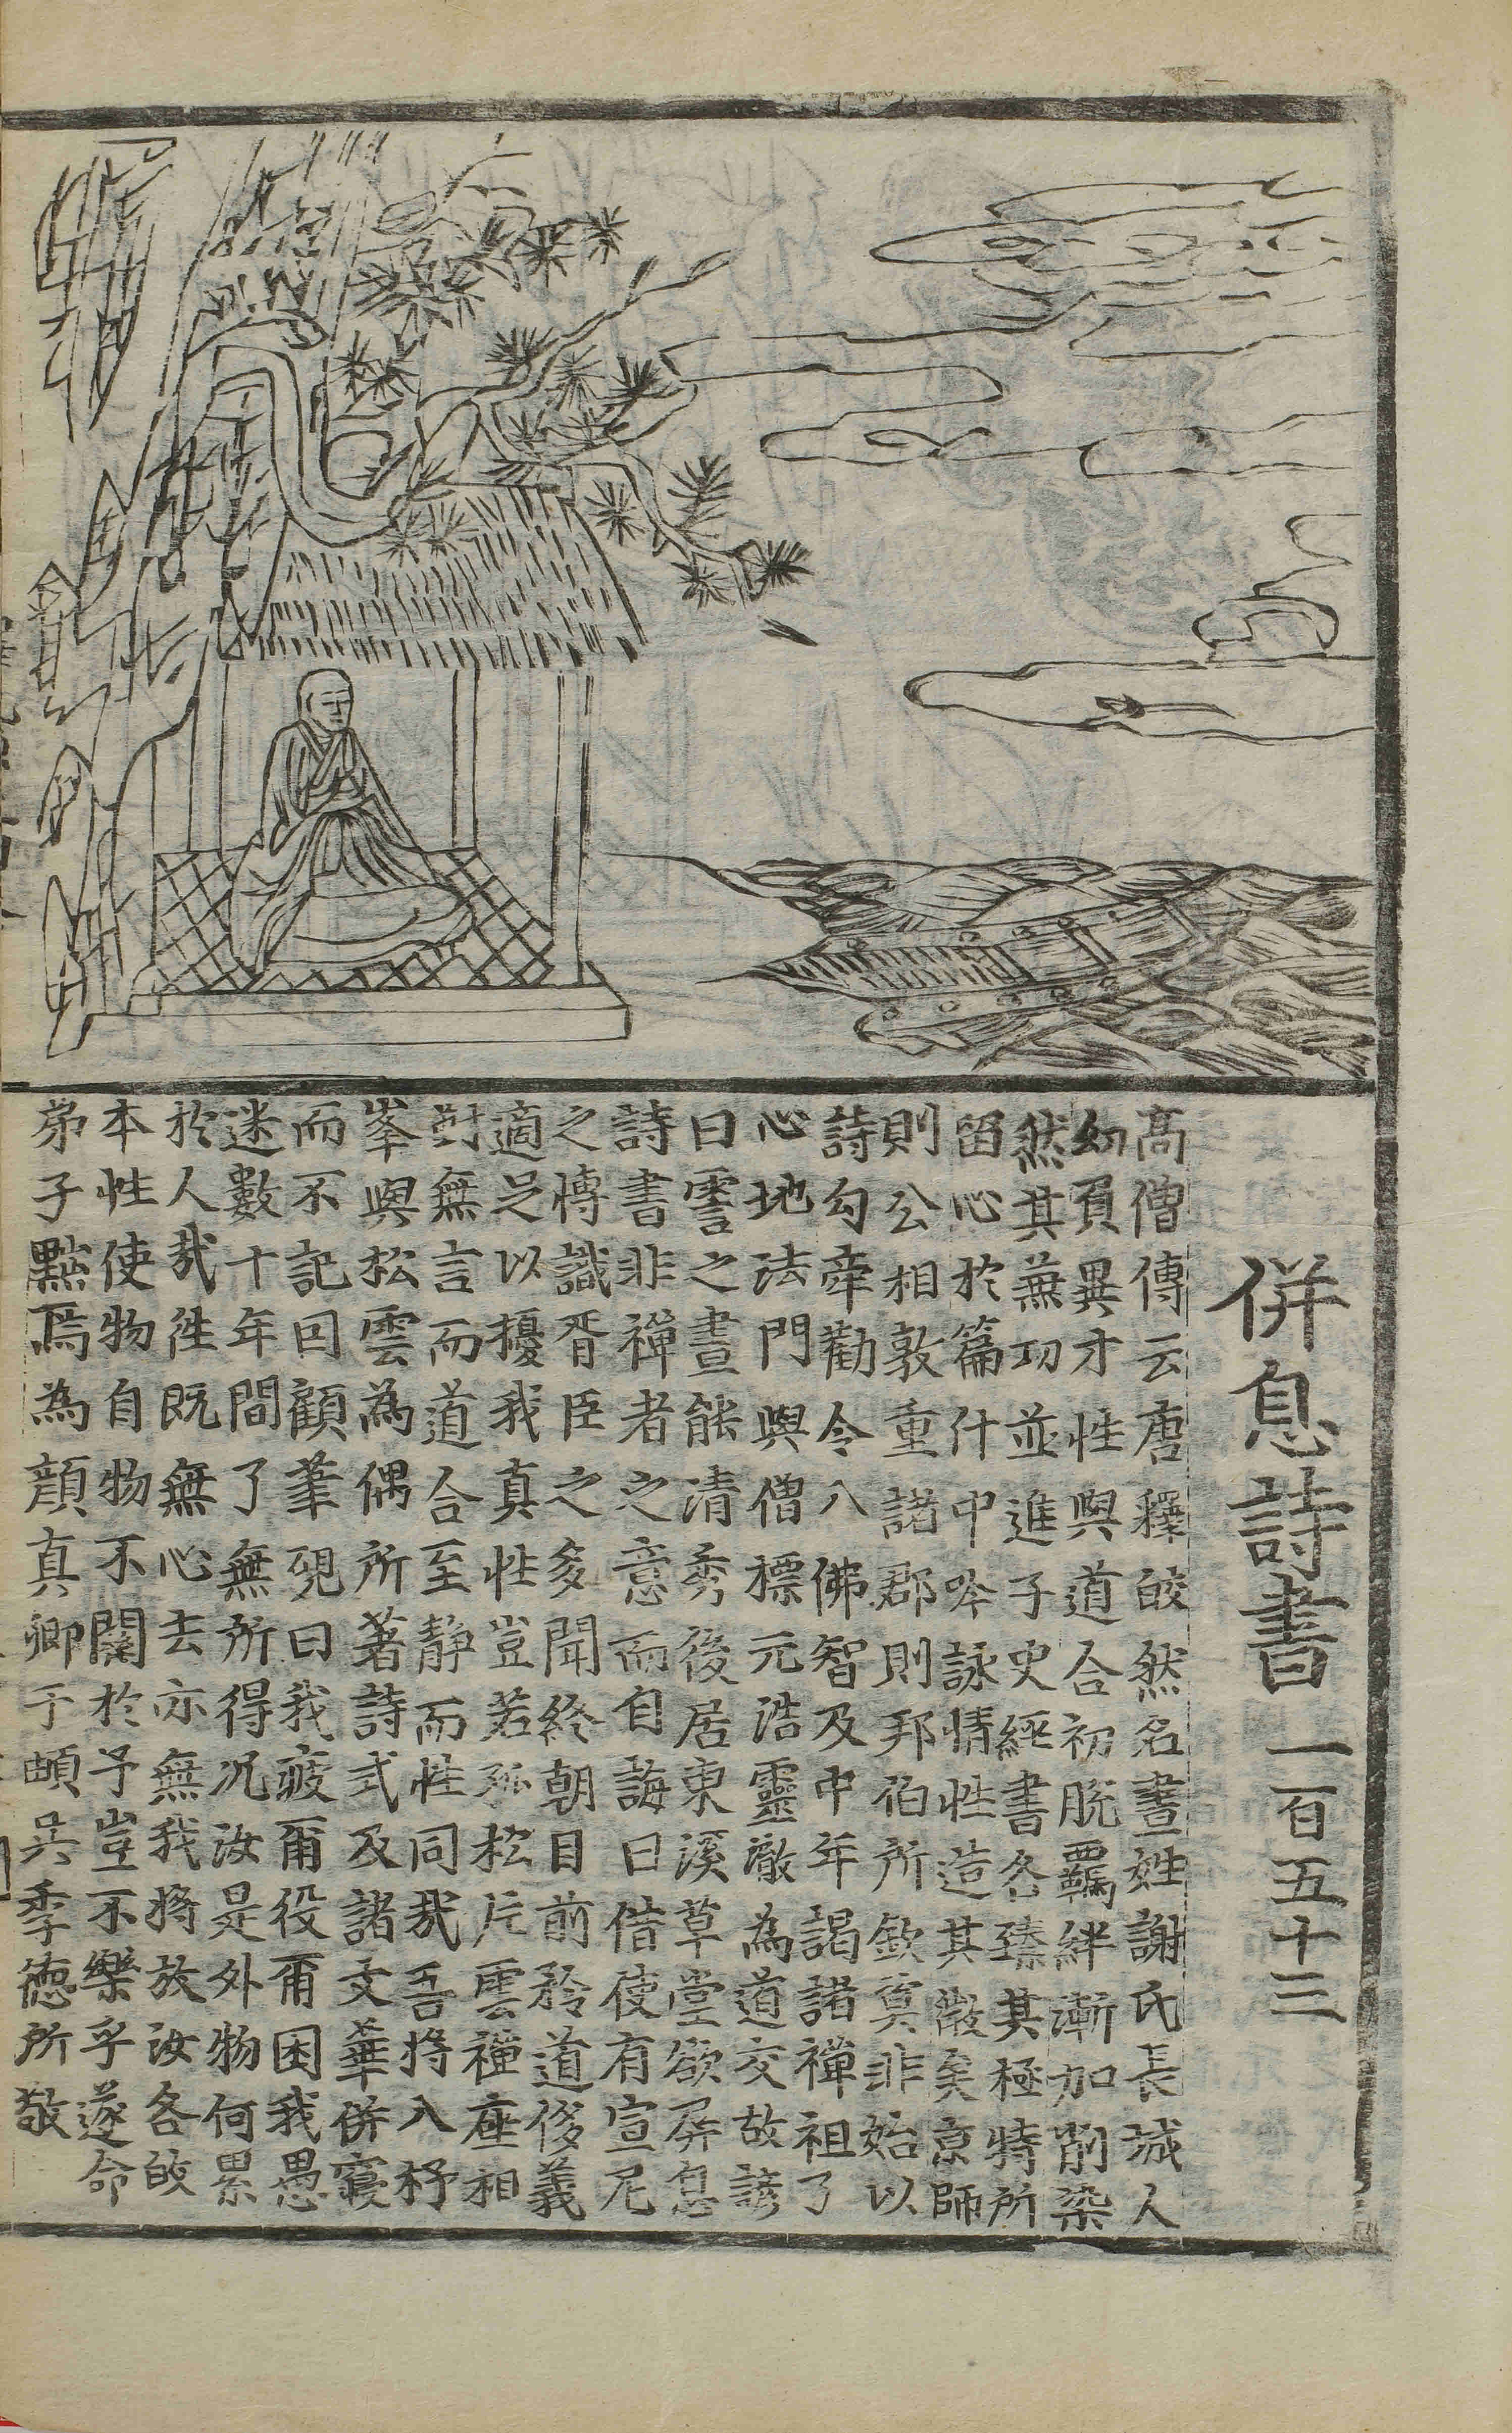 併息詩書　一百五十三
高僧傳云唐釋皎然名晝姓謝氏長城人
幼負異才性與道合初脫羈絆漸加削染
然其兼功並進子史經書各臻其極特所
留心於篇什中吟詠情性造其微矣京師
則公相敦重諸郡則邦伯所欽莫非始以
詩句牽勸令入佛智及中年謁諸禪祖了
心地法門與僧標元浩靈澈為道交故諺
曰霅之晝能清秀後居東溪草堂欲屏息
詩書非禪者之意而自誨曰借使有宣尼
之博識胥臣之多聞終朝目前矜道侈義
適足以擾我真性豈若孤松片雲禪座相
對無言而道合至静而性同哉吾將入杼
峯與松雲為偶所著詩式及諸文華併寢
而不記回顧筆硯曰我疲爾役爾困我愚
迷數十年間了無所得况汝是外物何累
於人哉徃既無心去亦無我將放汝各皈
本性使物自物不關於予豈不樂乎遂命
弟子黜焉為顔真卿于頔吳季德所敬